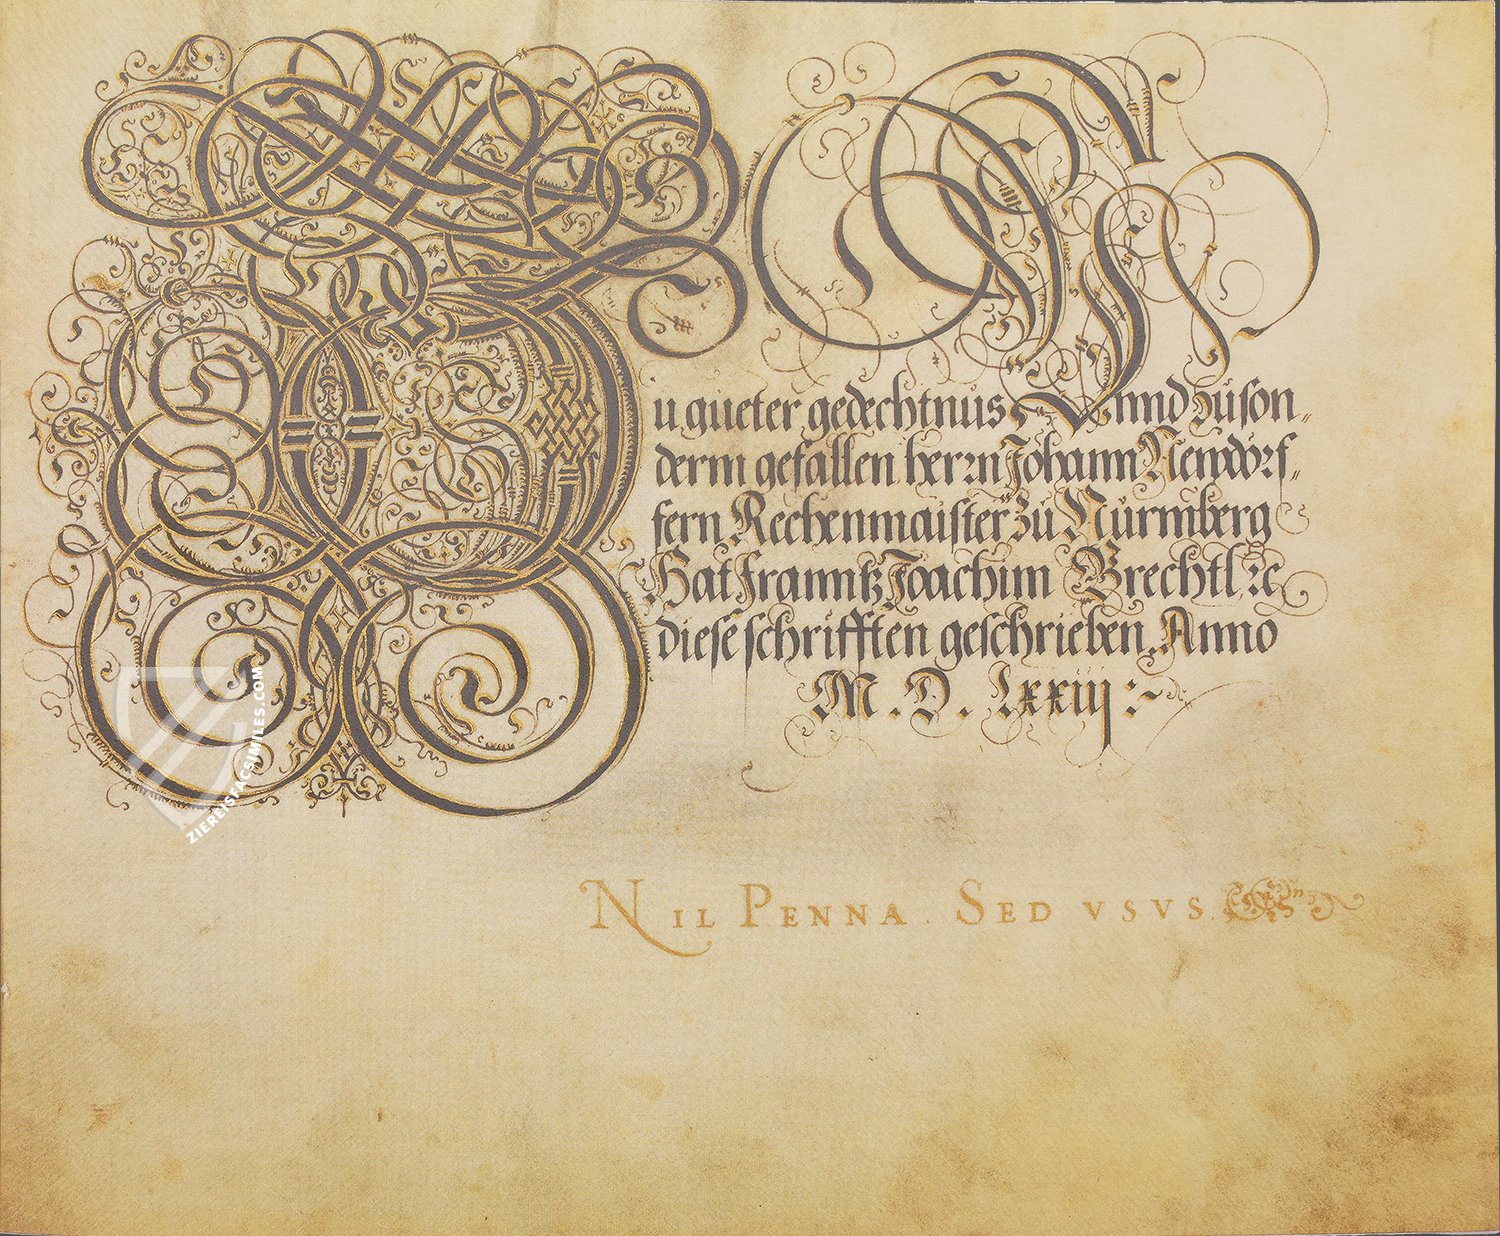 Zu gueter gedechtnus, Vnnd zu son„
derm gefallen herrn Johann Newdörf„
fern Rechenmaister zu Nürmberg
Hat Franntz Joachim Brechtl ꝛc
diese schrifften geschrieben, Anno
M. D. Lxxiij :~
NIL PENNA. SED VSVS.
ZIEREISFACSIMILES.COM